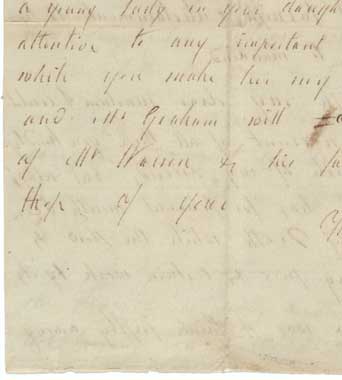 a young lady in your daugh
attentive to any important
which you make her my
and Mr Graham will
of Mr Warren & his fa
those of your